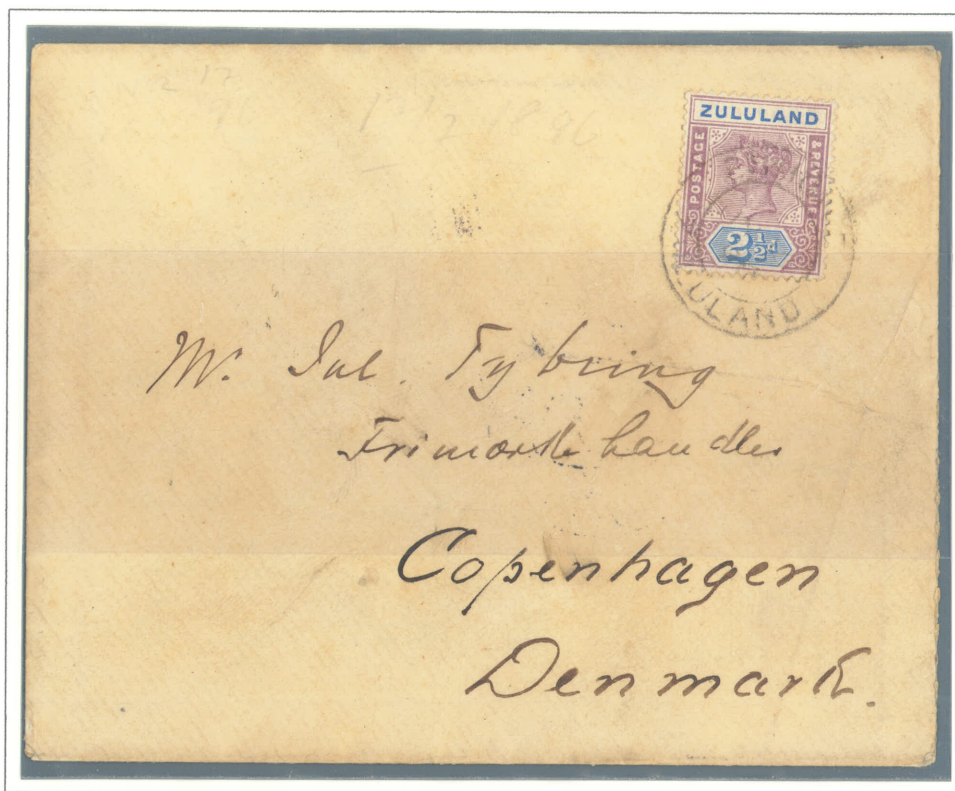 1896
ZULULAND
POSTAGE
& REVENUE
2½d
ULAND
Mr. Jul. Tybring
Frimærkehandler
Copenhagen
Denmark.